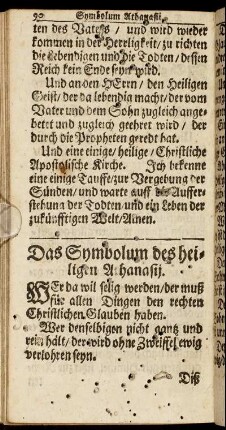 90 Symbolum Athanasii,
ten des Vaters / und wird wieder
kommen in der Herrligkeit / zu richten
die Lebendigen und die Todten / dessen
Reich kein Ende seyn wird.
Und an den HErrn / den Heiligen
Geist / der da lebendig macht / der vom
Vater und dem Sohn zugleich ange-
betet und zugleich geehret wird / der
durch die Propheten geredt hat.
Und eine einige / heilige / Christliche
Apostolische Kirche. Ich bekenne
eine einige Tauffe / zur Vergebung der
Sünden / und warte auff die Auffer-
stehung der Todten und ein Leben der
zukünfftigen Welt / Amen.
Das Symbolum des hei-
ligen Athanasij.
WEr da wil selig werden / der muß
für allen Dingen den rechten
Christlichen Glauben haben.
Wer denselbigen nicht gantz und
rein hält / der wird ohne Zweiffel ewig
verlohren seyn.
Diß